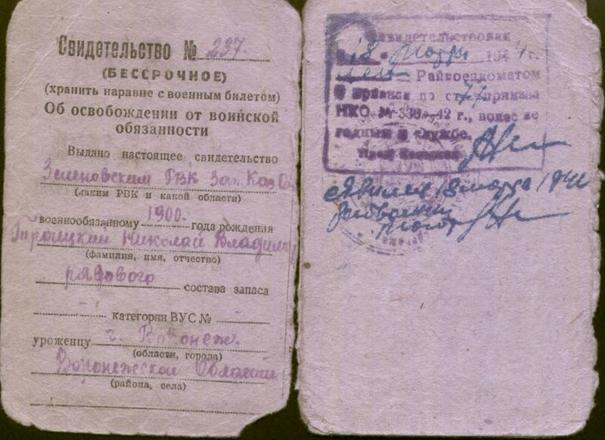 Свидетельство № 237.
(БЕССРОЧНОЕ)
(хранить наравне с военным билетом)
Об освобождении от воинской
обязанности
Выдано настоящее свидетельство
Зеленовским РВК Зап. Каз
(каким РВК и какой области)
военнообязанному 1900. года рождения
Троицкий Николай Владимир
(фамилия, имя, отчество)
рядового
состава запаса
категории ВУС №
уроженцу г. Воронеж.
(области, города)
Воронежской Области
(района, села)
18 194
Райвоенкоматом
и признан по ст.
НКО № 336 42 г., вовсе не
годным к службе.